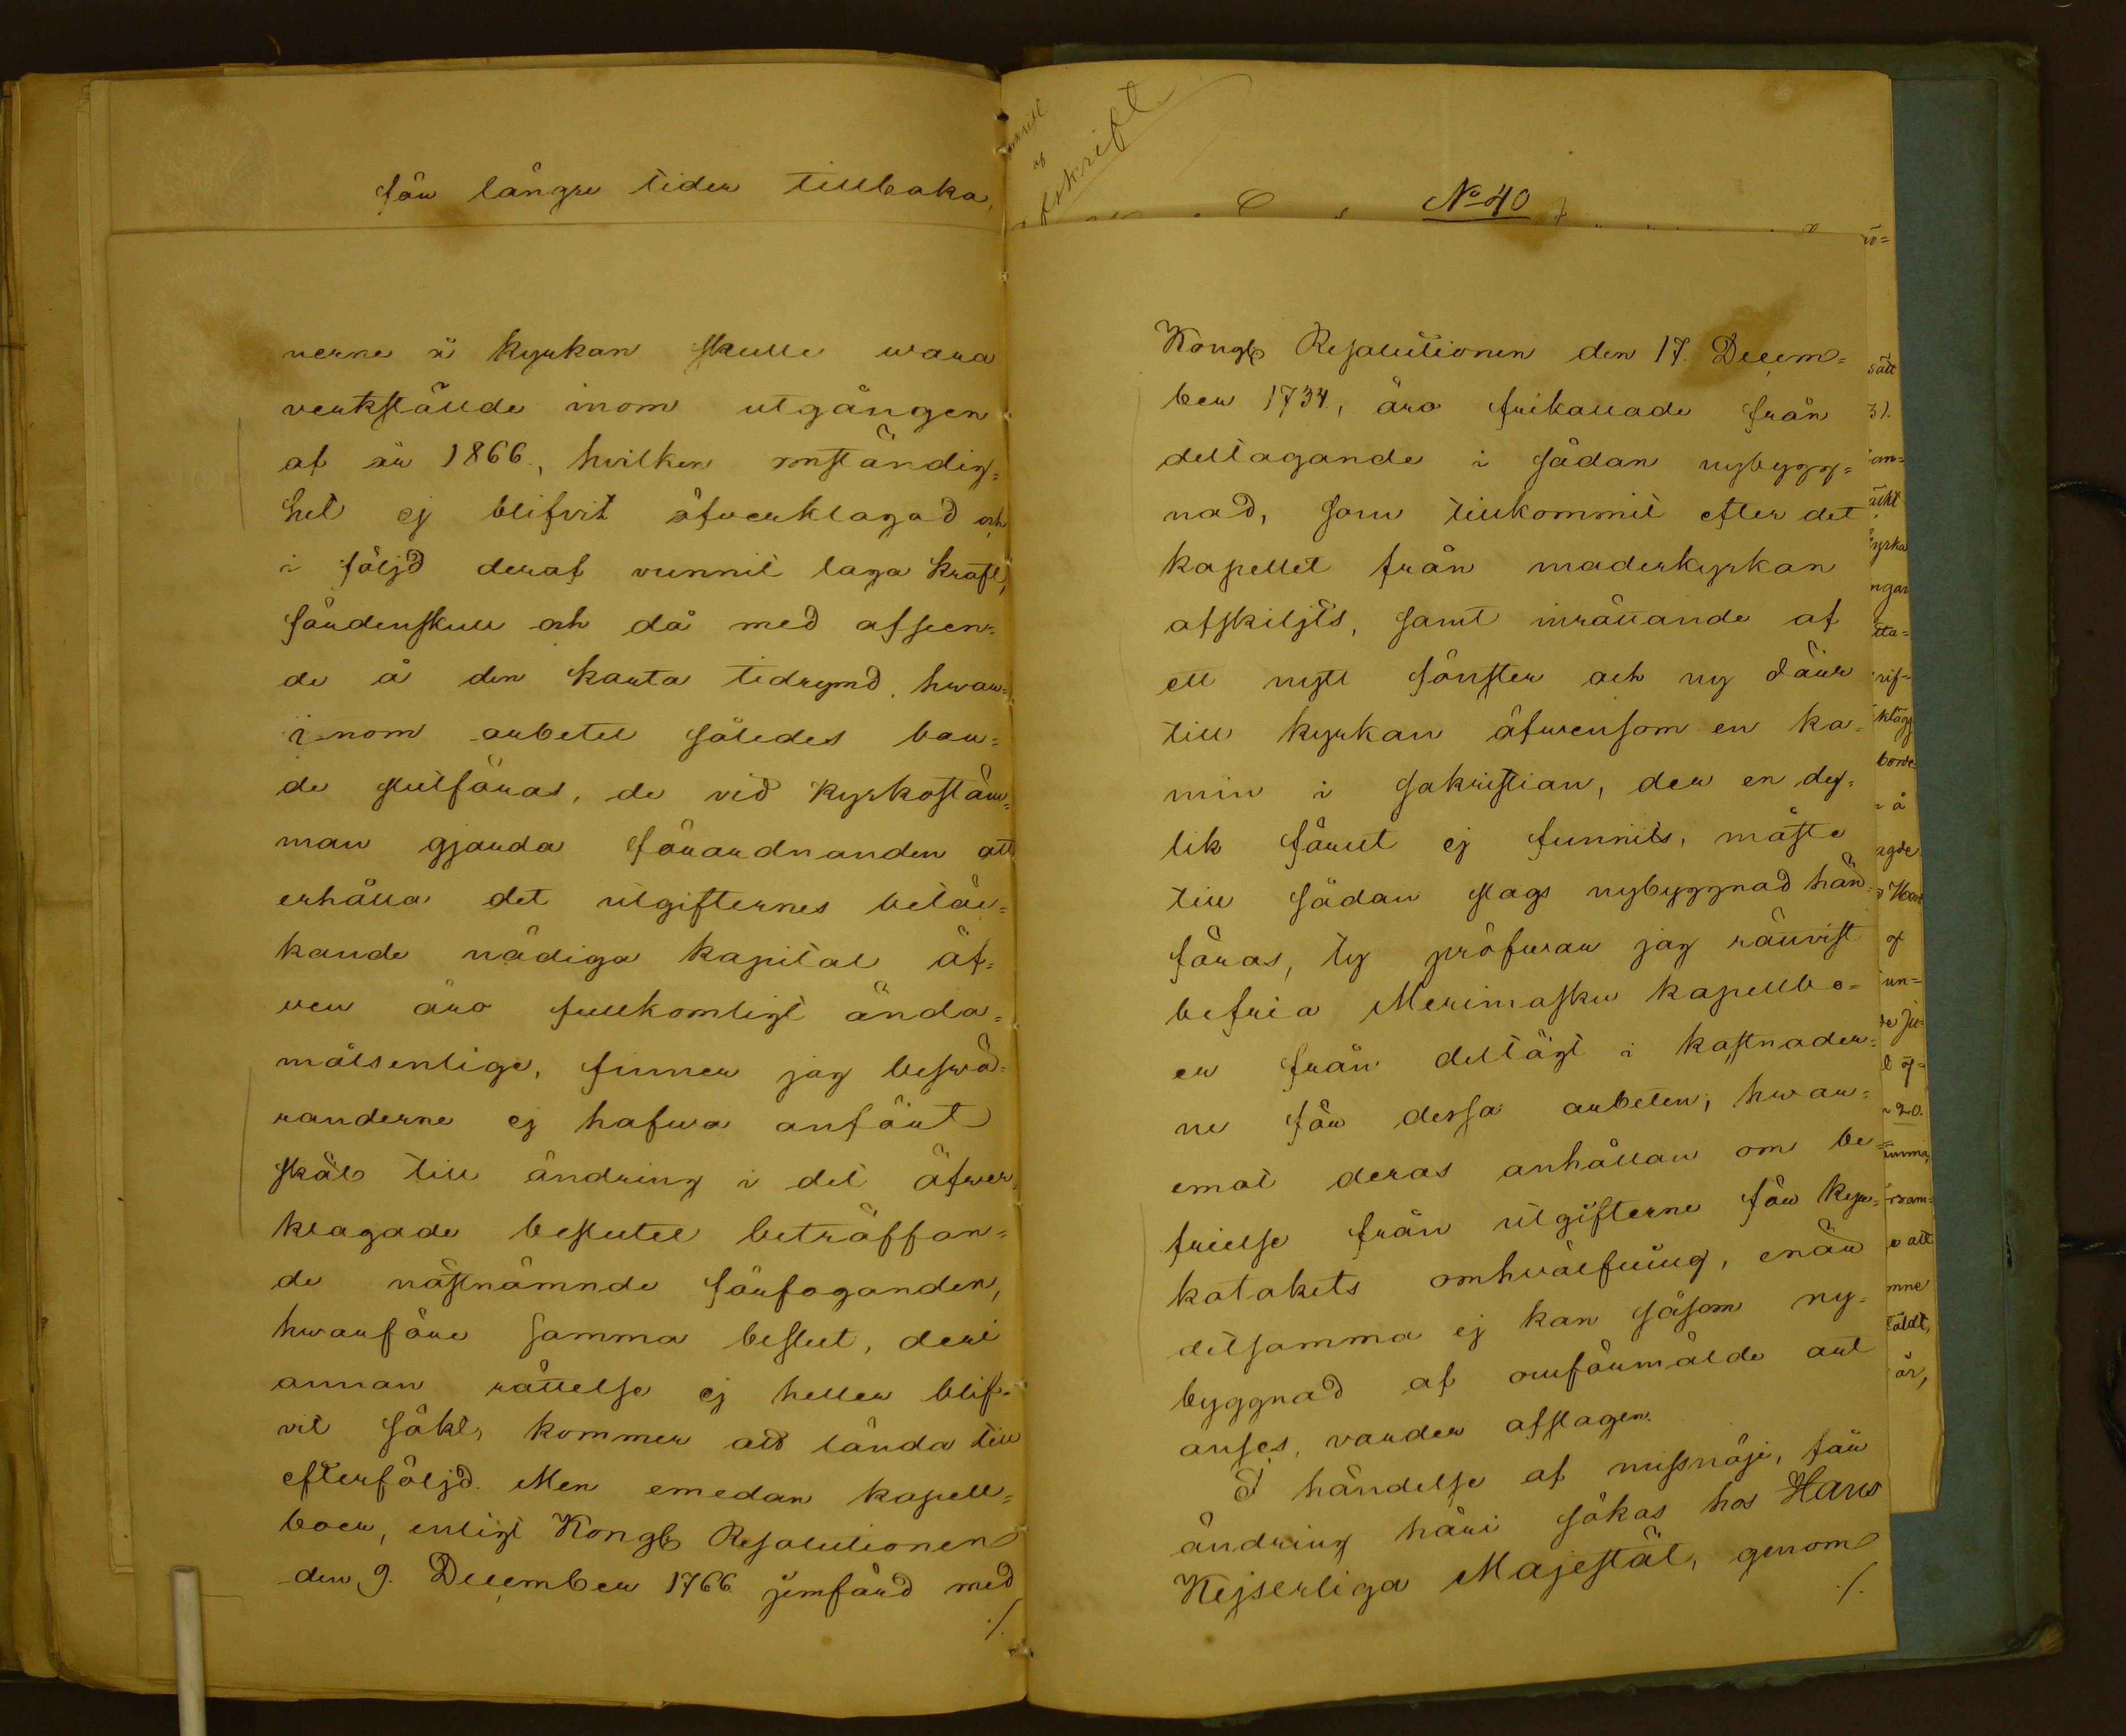 för längre tider tillbaka,
nerne å kyrkan skulle wara
verkstälde inom utgången
af år 1866, hvilken omständig=
het ej blifvit öfverklagad och
i följd deraf vunnit laga kraft,
fördenskull och då med afseen=
de å den korta tidrymd, hvar=
inom arbetet således bor=
de slutföras, de vid kyrkostäm=
man gjorda förordnanden att
erhålla det utgifternes betäc=
kande nödiga kapital äf=
ven äro fullkomligt ända=
målsenlige, finner jag beswä=
randerne ej hafwa anfört
skäl till ändring i det öfver
klagade beslutet beträffan=
de nästnämnde förfoganden,
hwarföre samma beslut, deri
annan rättelse ej heller blif=
vit sökt, kommer att lända till
efterföljd. Men emedan kapell=
boer, enligt Kongl Resolutionen
den 9. December 1766 jemförd med
./.
afskrift
af
Afskrift
No 40
Kongl Resolutionen den 17. Decem=
ber 1734, äro frikallade från
deltagande i sådan nybygg=
nad, som tillkommit efter det
kapellet från moderkyrkan
afskiljts, samt inrättande af
ett nytt fönster och ny dörr
till kyrkan äfwensom en ka=
min i sakristian, der en dy=
lik förut ej funnits, måste
till sådan slags nybyggnad hän=
föras, ty pröfwar jag rättvist
befria Merimasku kapellbo=
er från deltägt i kostnader=
ne för dessa arbeten; hwar=
emot deras anhållan om be=
frielse från utgifterne för kyr=
kotakets omhvälfning, enär
detsamma ej kan såsom ny=
byggnad af omförmälde art
anses, varder afslagen.
I händelse af missnöje, får
ändring häri sökas hos Hans
Kejserliga Majestät, genom
./.
sätt
31.
an=
äckt
kyrka
ngar
tta=
borde
å
agde
of
un=
20.
att
mne
år,